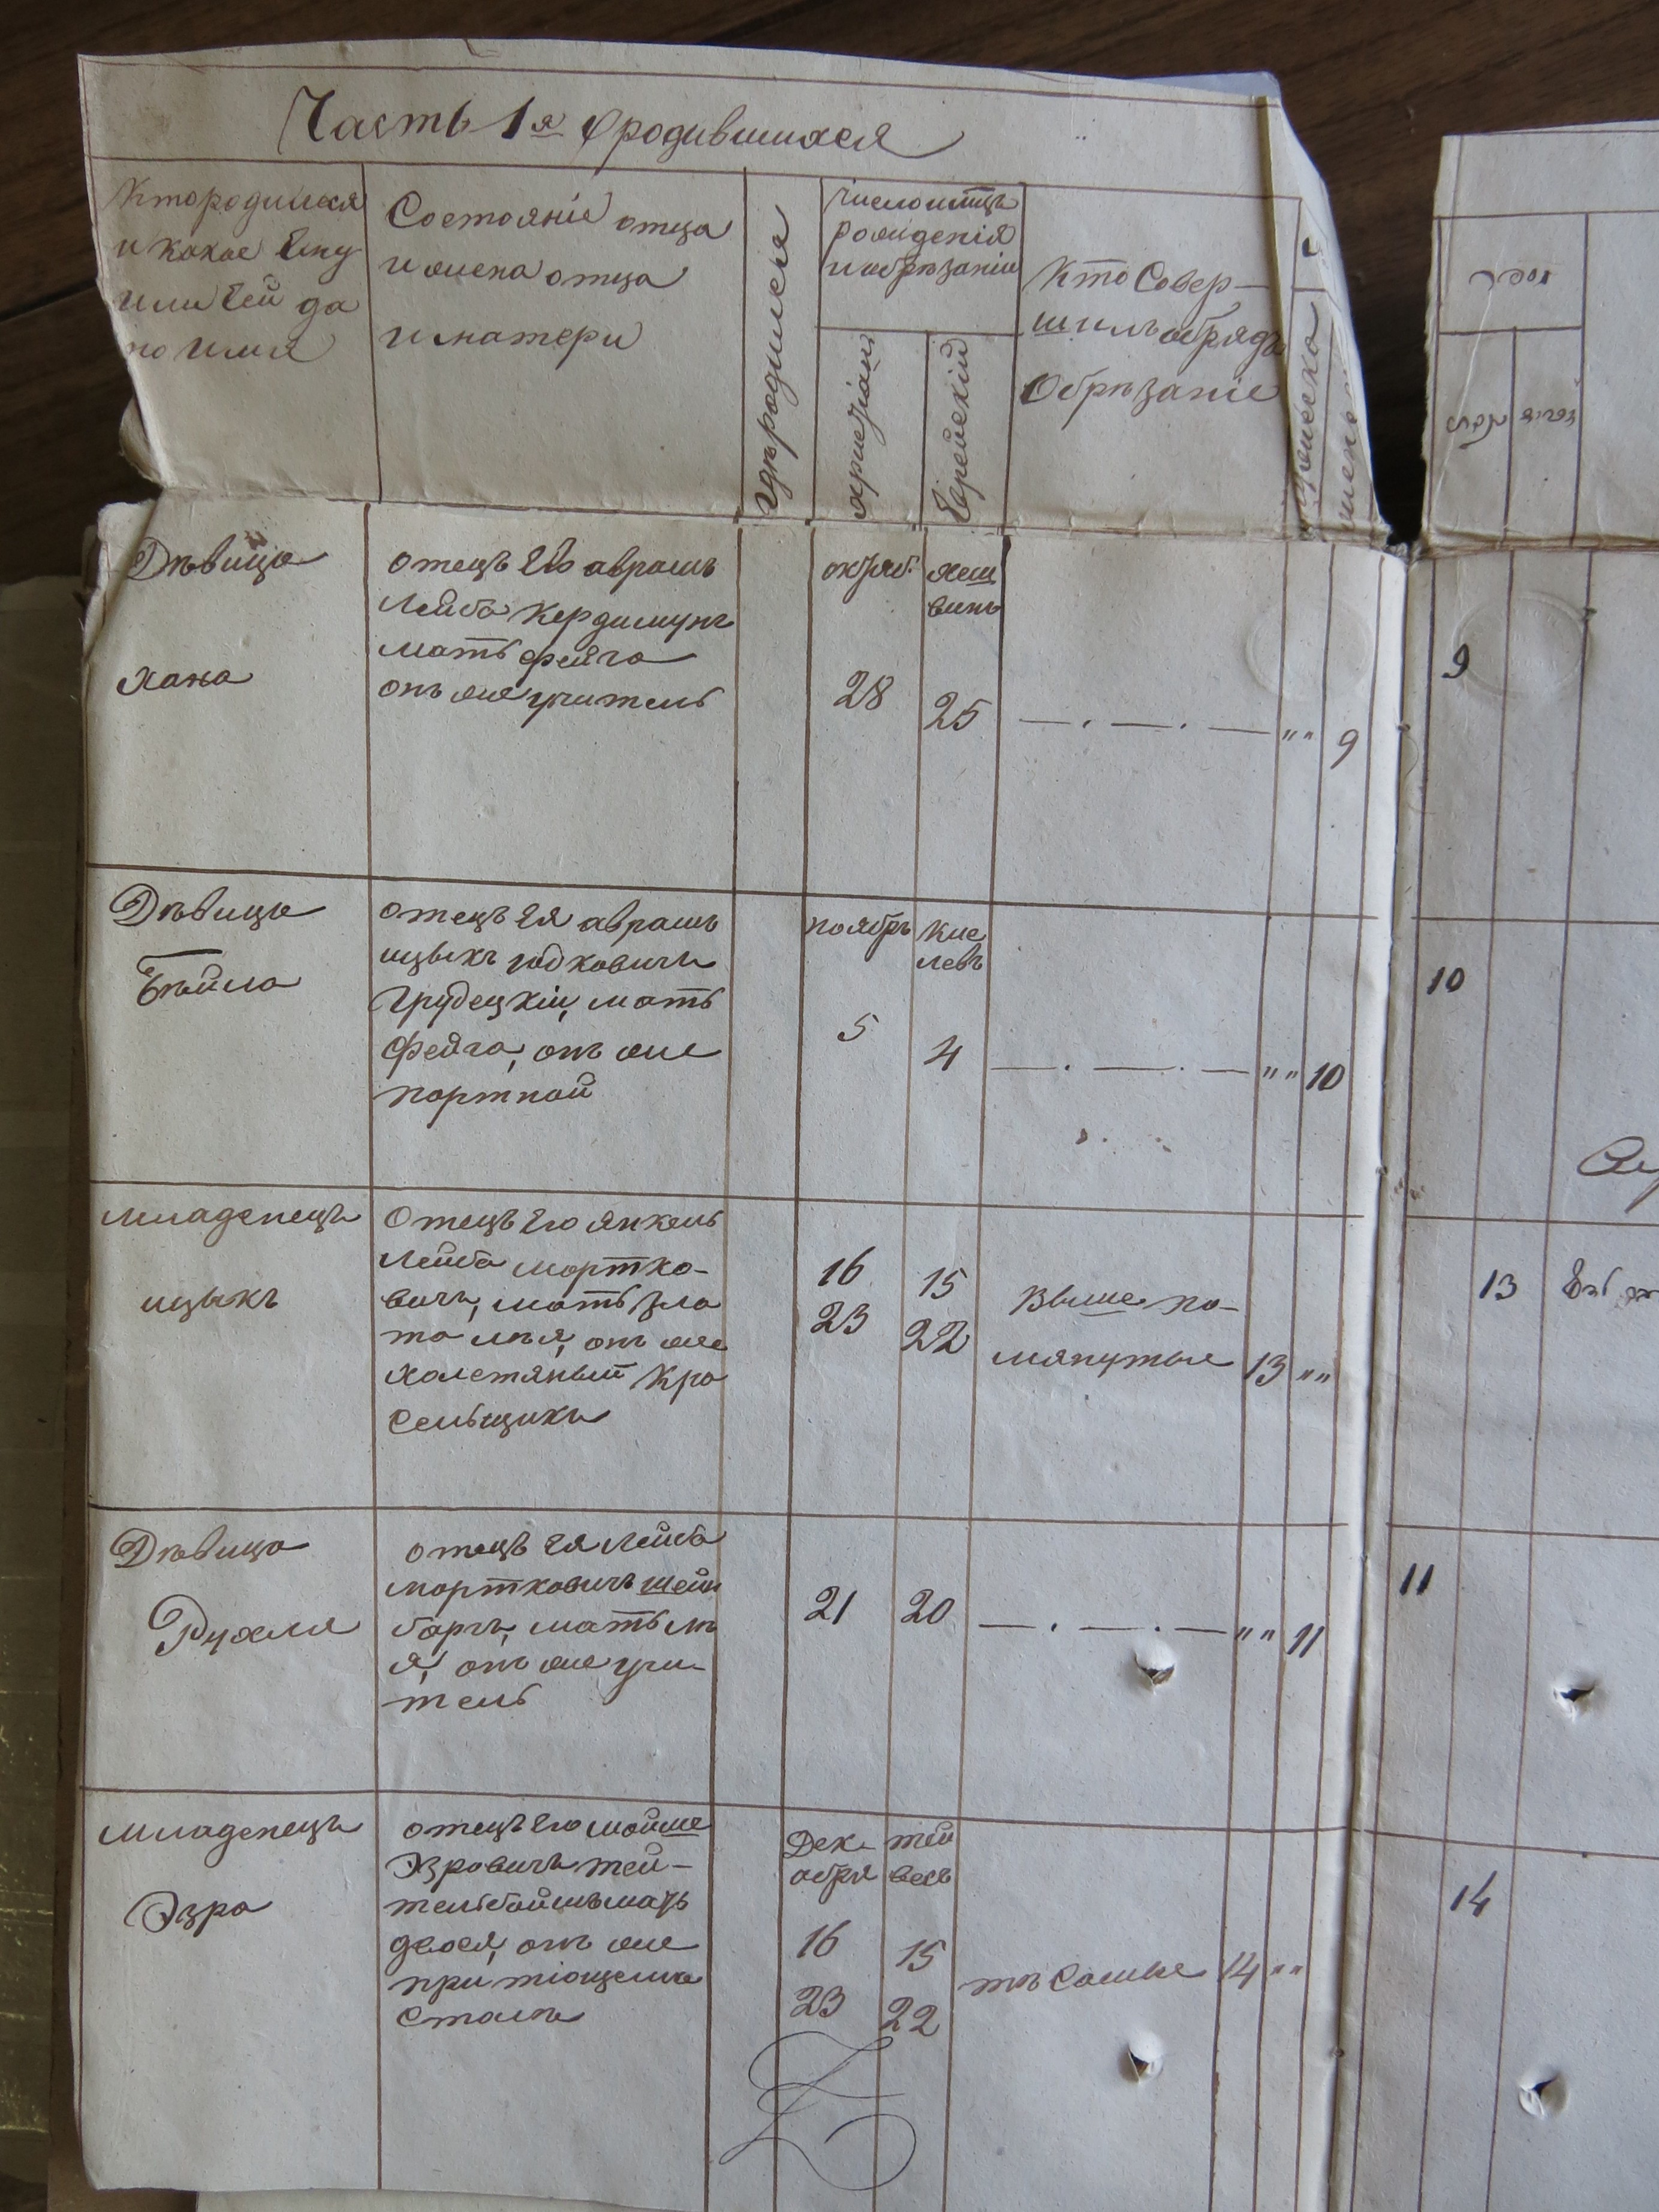 Часть 1я о родившихся
Кто родился
и какое ему
или ей да
но имя
Состояніе отца
и имена отца
и матери
Гдѣ родился
Число и мѣсяцъ
рожденія
и обрѣзаніи
христіан
Еврейскій
Кто Совер-
шилъ обрядъ
Обрѣзаніе
мужеска
женска
Дѣвица
хана
отецъ Его аврамъ
Лейба Кердимунъ
мать фейга
онъ же учитель
октяб.
хеш
винъ
28
25
— . — . —
" "
9
9
Дѣвица
Бейла
отецъ Ея аврамъ
ицыкъ юдковичъ
Грудецкій, мать
Фейга, онъ же
портной
ноябрь
Кис
левъ
5
4
— . — . —
" "
10
10
младенецъ
ицыкъ
Отецъ Его янкель
Лейба мортко-
вичъ, мать Зла
та лѣя, онъ же
холстяный Кра
сельщикъ
16
23
15
22
Выше по-
мянутые
13
" "
13
Дѣвица
Рухля
отецъ Ея Лейба
мортковичъ шейн
баргъ, мать лѣ
я, онъ же учи-
тель
21
20
— . — . —
" "
11
11
младенецъ
Эзра
отецъ Его мойше
Эзровичъ тей-
тельбаймъ мать
двося, онъ же
при тіощемъ
столѣ
Дек
абря
тей
весъ
16
23
15
22
тѣ Самые
14
" "
14